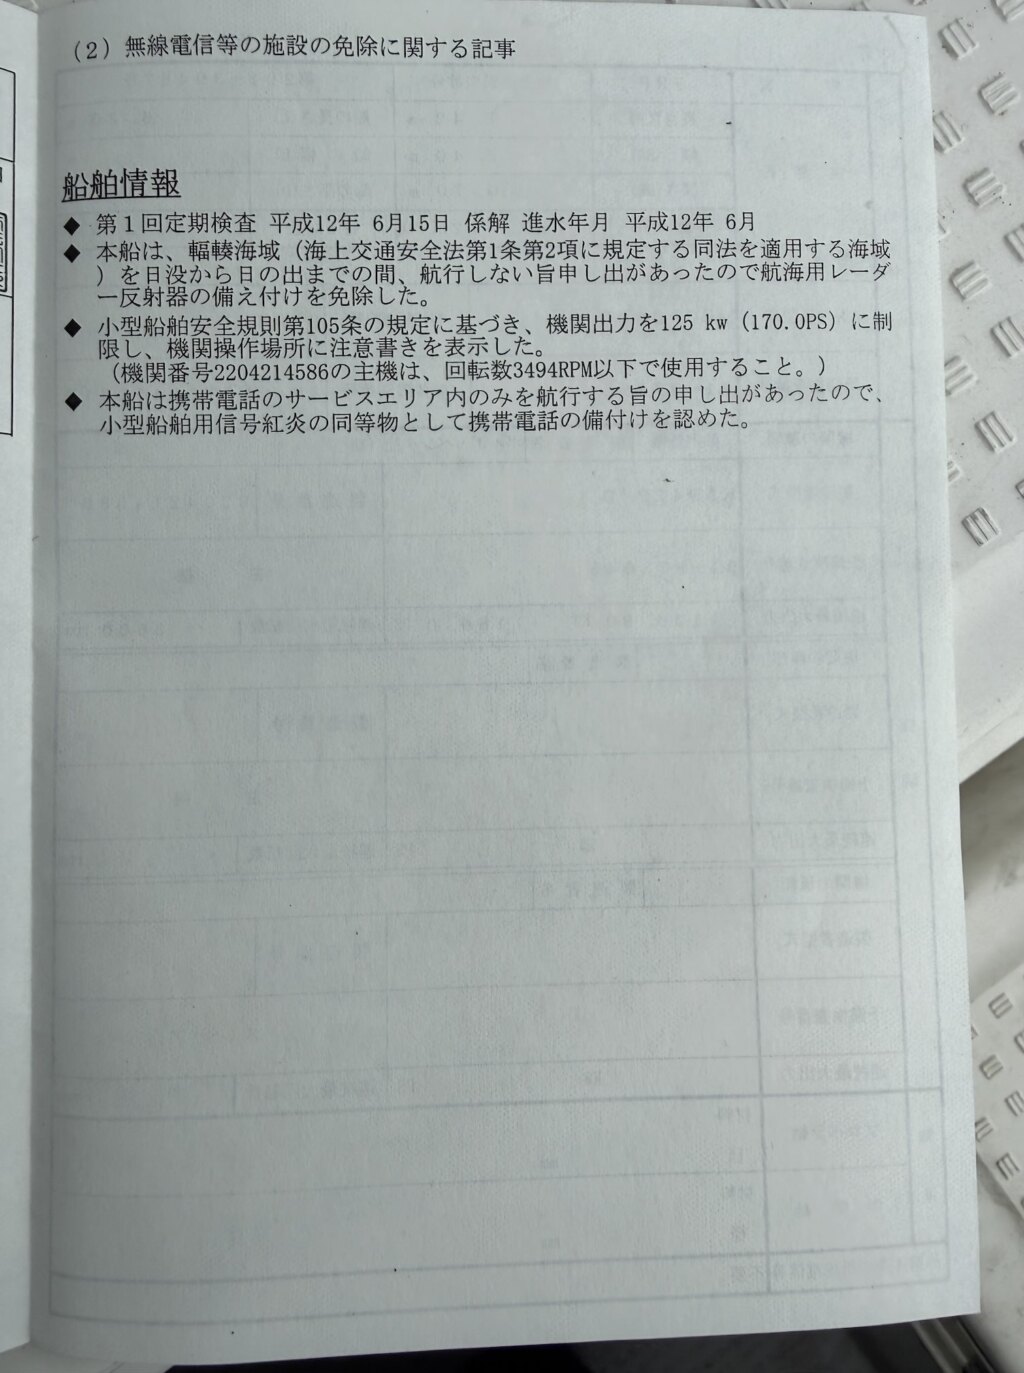 （2）無線電信等の施設の免除に関する記事
船舶情報
◆ 第１回定期検査 平成12年 6月15日 係解 進水年月 平成12年 6月
◆ 本船は、輻輳海域（海上交通安全法第1条第2項に規定する同法を適用する海域
）を日没から日の出までの間、航行しない旨申し出があったので航海用レーダ
ー反射器の備え付けを免除した。
◆ 小型船舶安全規則第105条の規定に基づき、機関出力を125 kw（170.0PS）に制
限し、機関操作場所に注意書きを表示した。
（機関番号2204214586の主機は、回転数3494RPM以下で使用すること。）
◆ 本船は携帯電話のサービスエリア内のみを航行する旨の申し出があったので、
小型船舶用信号紅炎の同等物として携帯電話の備付けを認めた。